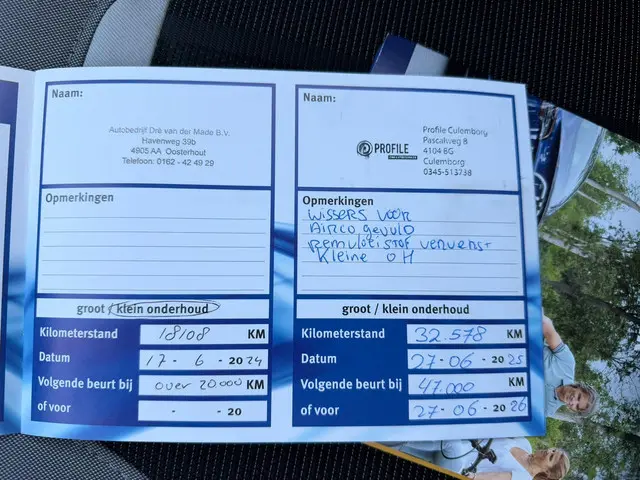 Naam:
Autobedrijf Dré van der Made B.V.
Havenweg 39b
4905 AA Oosterhout
Telefoon: 0162 - 42 49 29
Opmerkingen
groot / klein onderhoud
Kilometerstand 18108 KM
Datum 17 - 6 - 2024
Volgende beurt bij over 20.000 KM
of voor - - 20
Naam:
PROFILE
Profile Culemborg
Pascalweg 8
4104 BG
Culemborg
0345-513738
Opmerkingen
Wissers voor
Airco gevuld
remvloeistof ververst
Kleine OH
groot / klein onderhoud
Kilometerstand 32.578 KM
Datum 27-06-2025
Volgende beurt bij 47.000 KM
of voor 27-06-2026